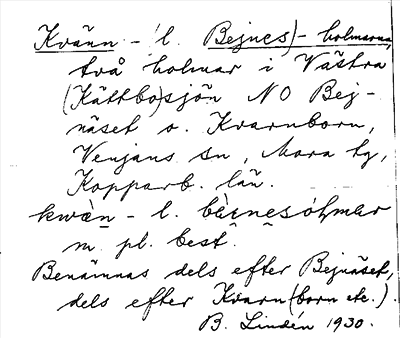 Kvänn - l. Bejnes)- holmarna,
två holmar i Västra
(Kättbo)sjön NO Bej-
näset o. Kvarnborn,
Venjans sn, Mora tg,
Kopparb. län.
kwàn - l. bèinesóhmar
m. pl. best.
Benämnas dels efter Bejnäset,
dels efter Kvarn(born etc.).
B. Lindén 1930.